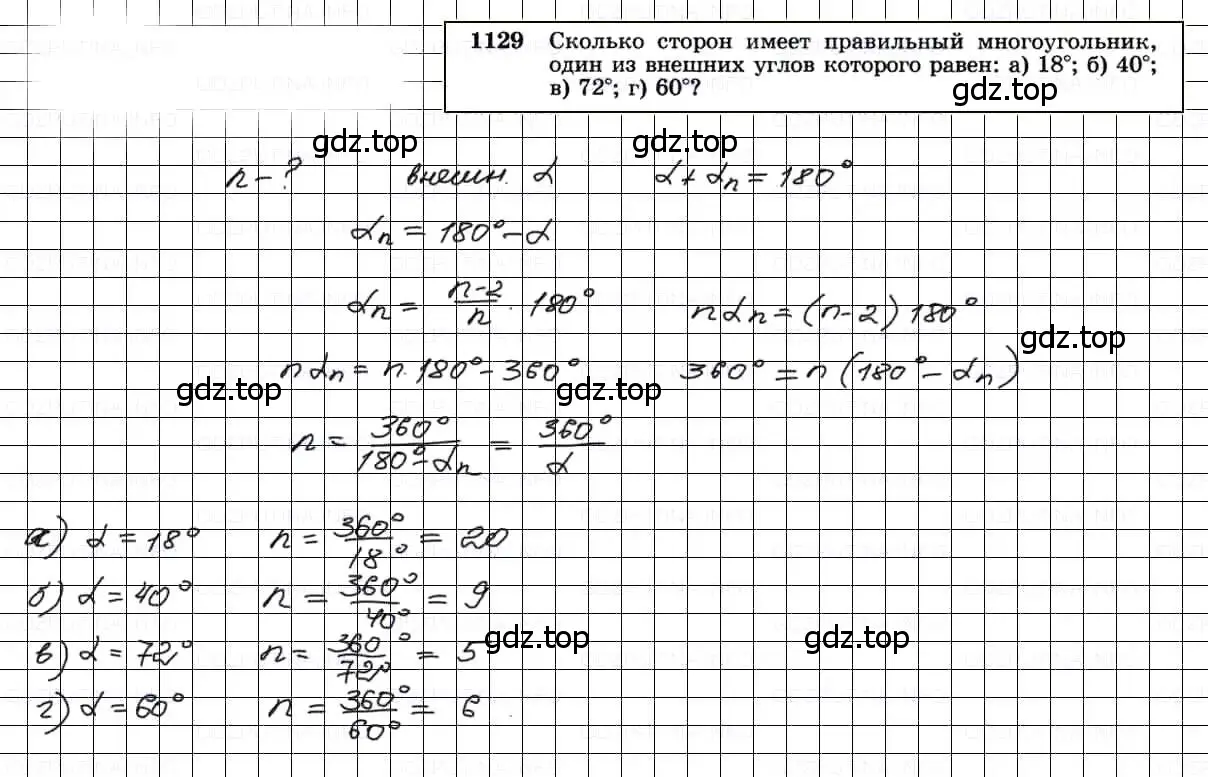 1129 Сколько сторон имеет правильный многоугольник,
один из внешних углов которого равен: а) 18°; б) 40°;
в) 72°; г) 60°?
gdz.top
gdz.top gdz.top
n - ? внешн. α α + αₙ = 180°
αₙ = 180° - α
αₙ = (n-2)/n · 180° nαₙ = (n-2) 180°
gdz.top
nαₙ = n · 180° - 360° 360° = n (180° - αₙ)
gdz.top gdz.top
n = 360°/(180° - αₙ) = 360°/α
а) α = 18° n = 360°/18° = 20
б) α = 40° n = 360°/40° = 9
в) α = 72° n = 360°/72° = 5
gdz.top gdz.top
г) α = 60° n = 360°/60° = 6